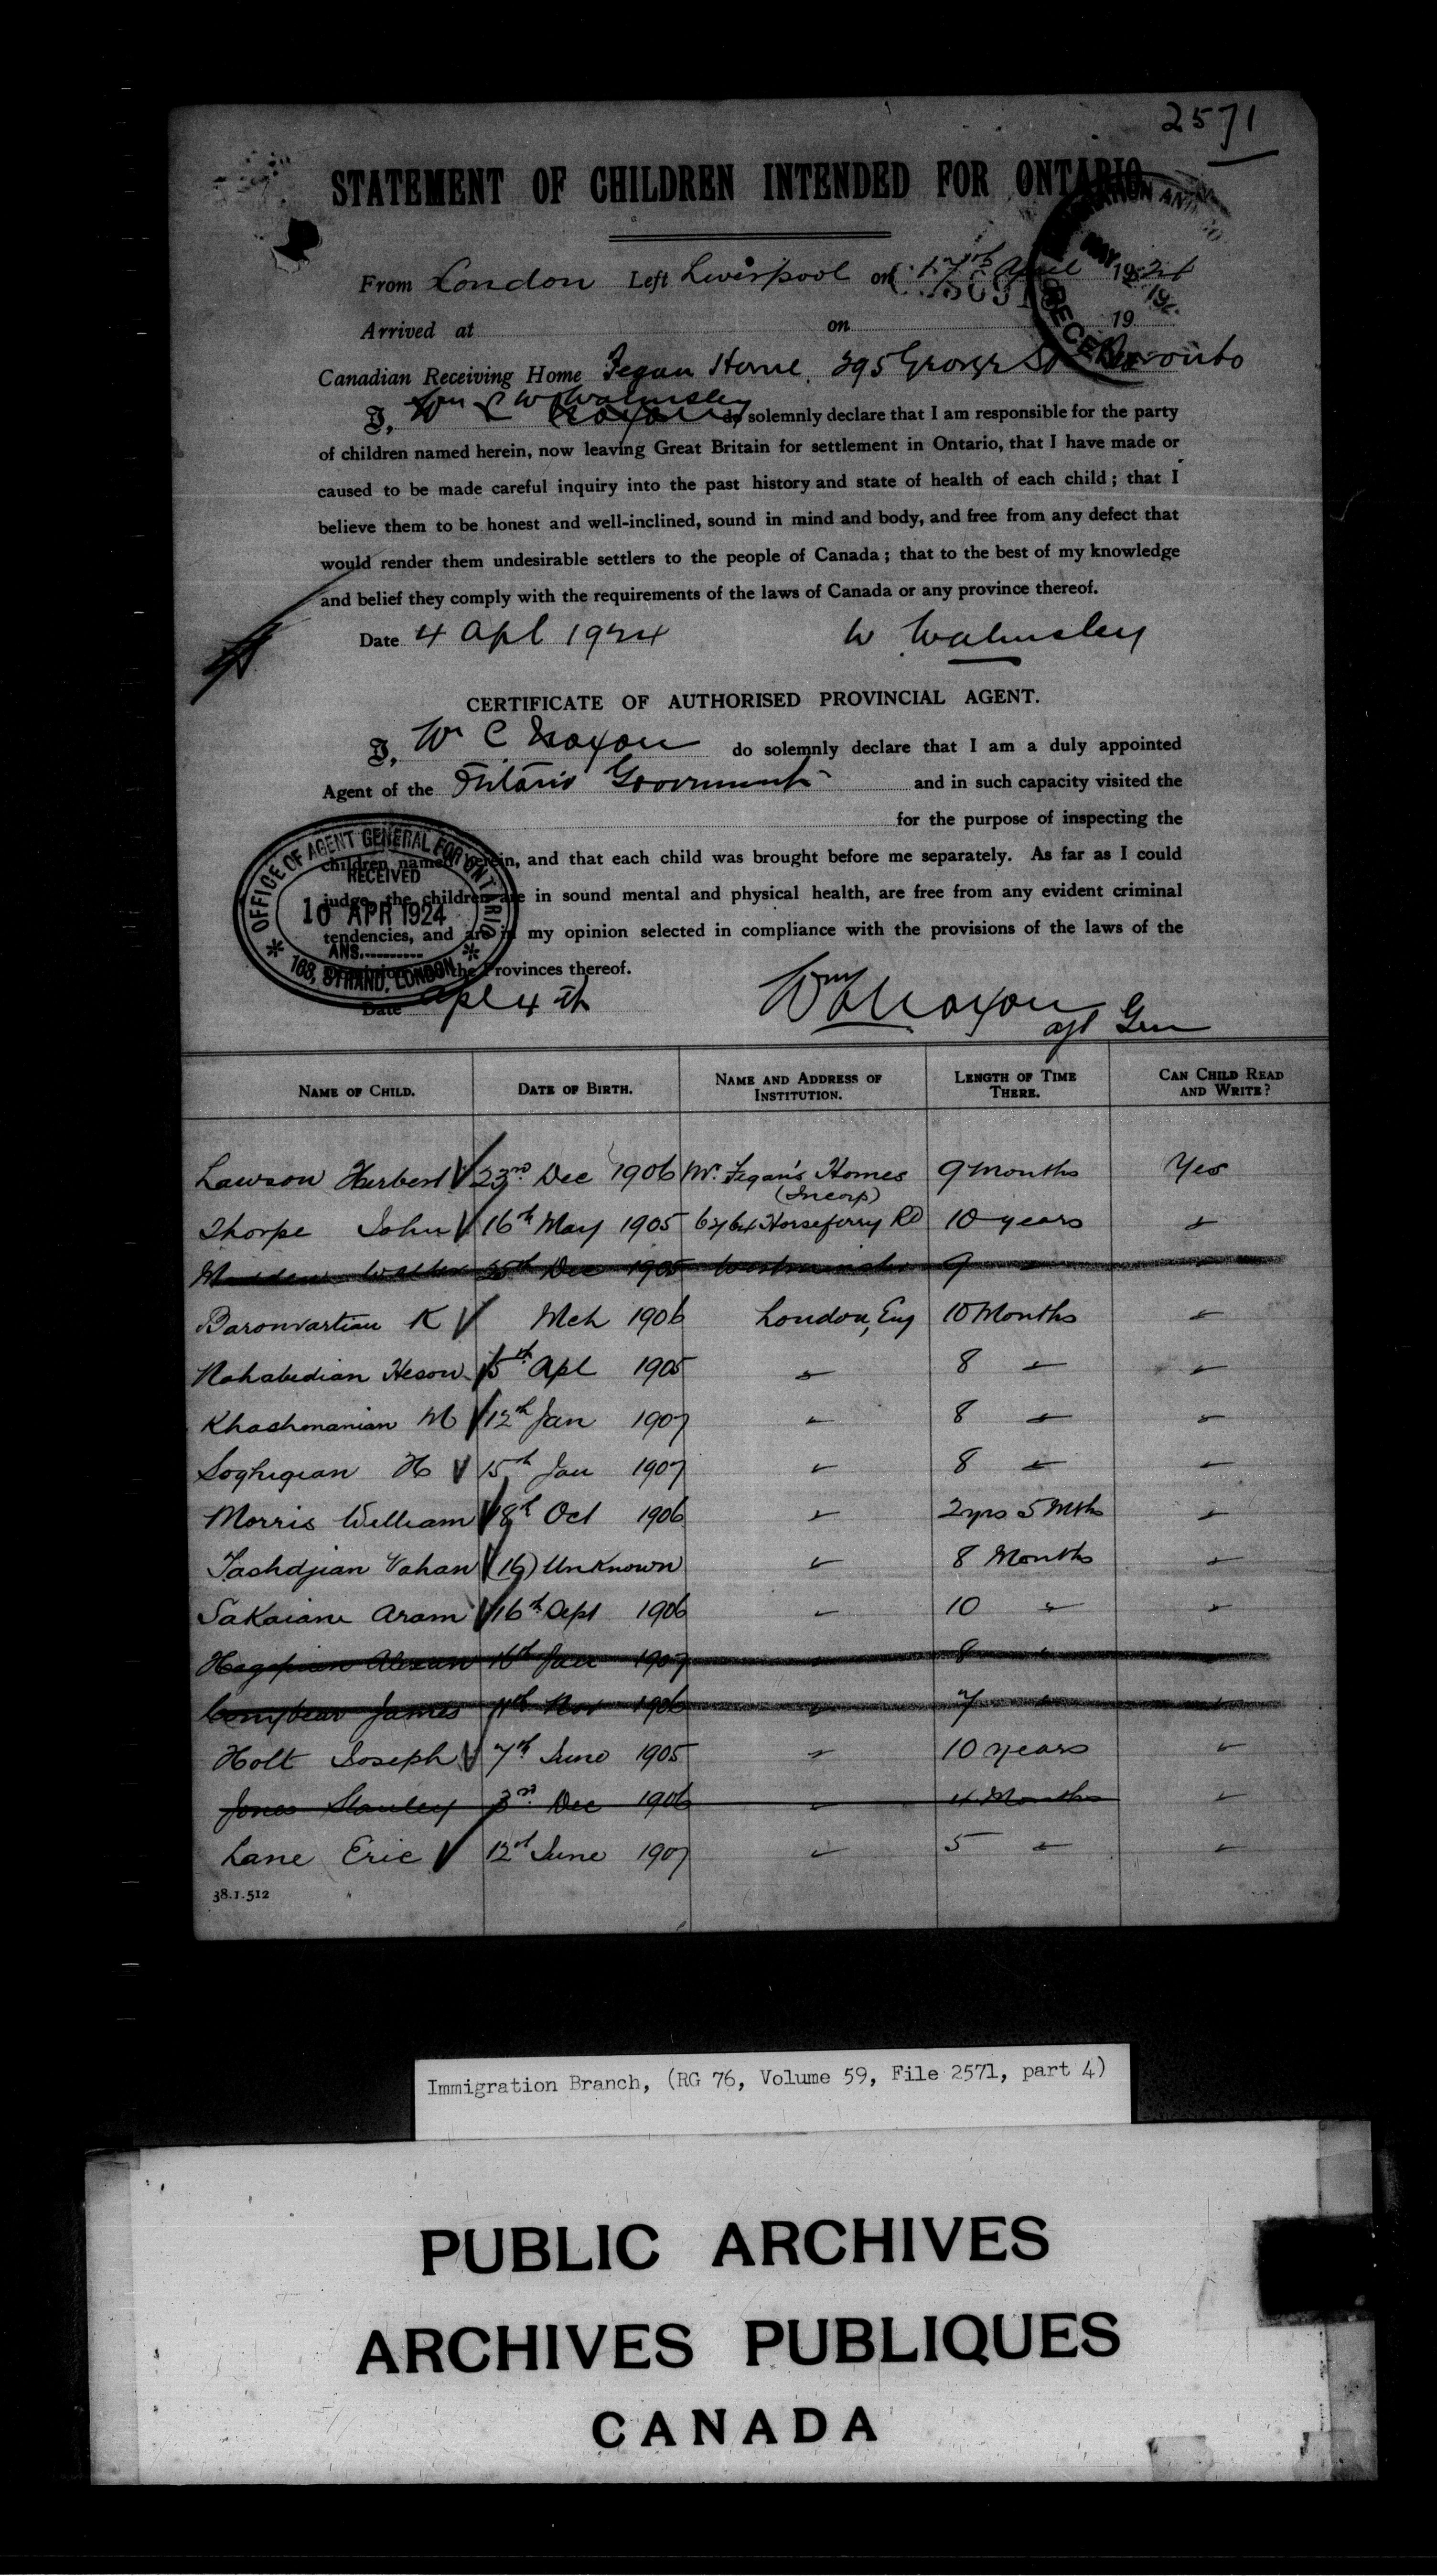 2571
STATEMENT OF CHILDREN INTENDED FOR ONTARIO
From London Left Liverpool on 17th April 1924
Arrived at on 19
Canadian Receiving Home Fegan Home, 295 George St Toronto
I, W Walmsley do solemnly declare that I am responsible for the party
of children named herein, now leaving Great Britain for settlement in Ontario, that I have made or
caused to be made careful inquiry into the past history and state of health of each child; that I
believe them to be honest and well-inclined, sound in mind and body, and free from any defect that
would render them undesirable settlers to the people of Canada; that to the best of my knowledge
and belief they comply with the requirements of the laws of Canada or any province thereof.
Date 4 Apl 1924 W Walmsley
CERTIFICATE OF AUTHORISED PROVINCIAL AGENT.
I, Wm C Noxon do solemnly declare that I am a duly appointed
Agent of the Ontario Government and in such capacity visited the
for the purpose of inspecting the
children named herein, and that each child was brought before me separately. As far as I could
judge, the children are in sound mental and physical health, are free from any evident criminal
tendencies, and are in my opinion selected in compliance with the provisions of the laws of the
the Provinces thereof.
OFFICE OF AGENT GENERAL FOR ONTARIO
RECEIVED
10 APR 1924
ANS.
163, STRAND, LONDON.
Date Apl 4th Wm C Noxon
Agt Gen
NAME OF CHILD. DATE OF BIRTH. NAME AND ADDRESS OF INSTITUTION. LENGTH OF TIME THERE. CAN CHILD READ AND WRITE?
Lawson Herbert 23rd Dec 1906 Mr. Fegan's Homes 9 months Yes
(Incorp)
Thorpe John 16th May 1905 62/64 Horseferry Rd 10 years "
Walter 25th Dec 1905 Westminster 9 " "
Baronvartian K Mch 1906 London, Eng 10 Months "
Nahabedian Hesou 5th Apl 1905 " 8 " "
Khashmanian M 12th Jan 1907 " 8 " "
Soghigian H 15th Jan 1907 " 8 " "
Morris William 8th Oct 1906 " 2 yrs 5 Mths "
Tashdjian Vahan (16) Unknown " 8 Months "
Sakaiane Aram 16th Sept 1906 " 10 " "
16th Jan 1907 " 8 " "
Conybear James 11th Nov 1906 " 7 " "
Holt Joseph 7th June 1905 " 10 years "
Jones Stanley 3rd Dec 1906 " 4 Months "
Lane Eric 12th June 1907 " 5 " "
38.1.512
Immigration Branch, (RG 76, Volume 59, File 2571, part 4)
PUBLIC ARCHIVES
ARCHIVES PUBLIQUES
CANADA